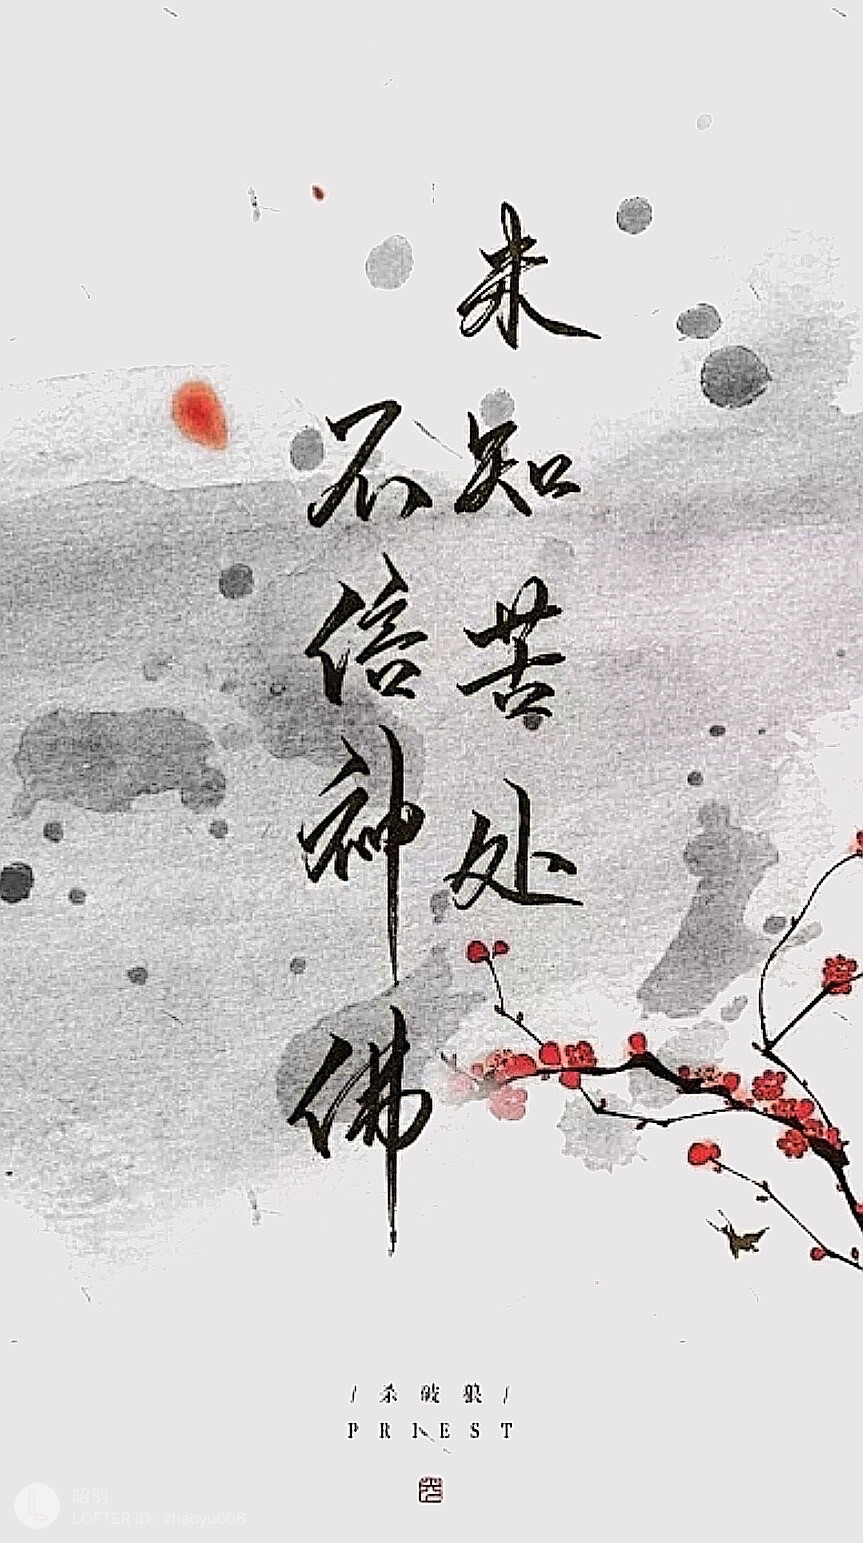 未知苦处
不信神佛
/ 杀破狼 /
PRIEST
昭羽
LOFTER ID : zhaoyu606